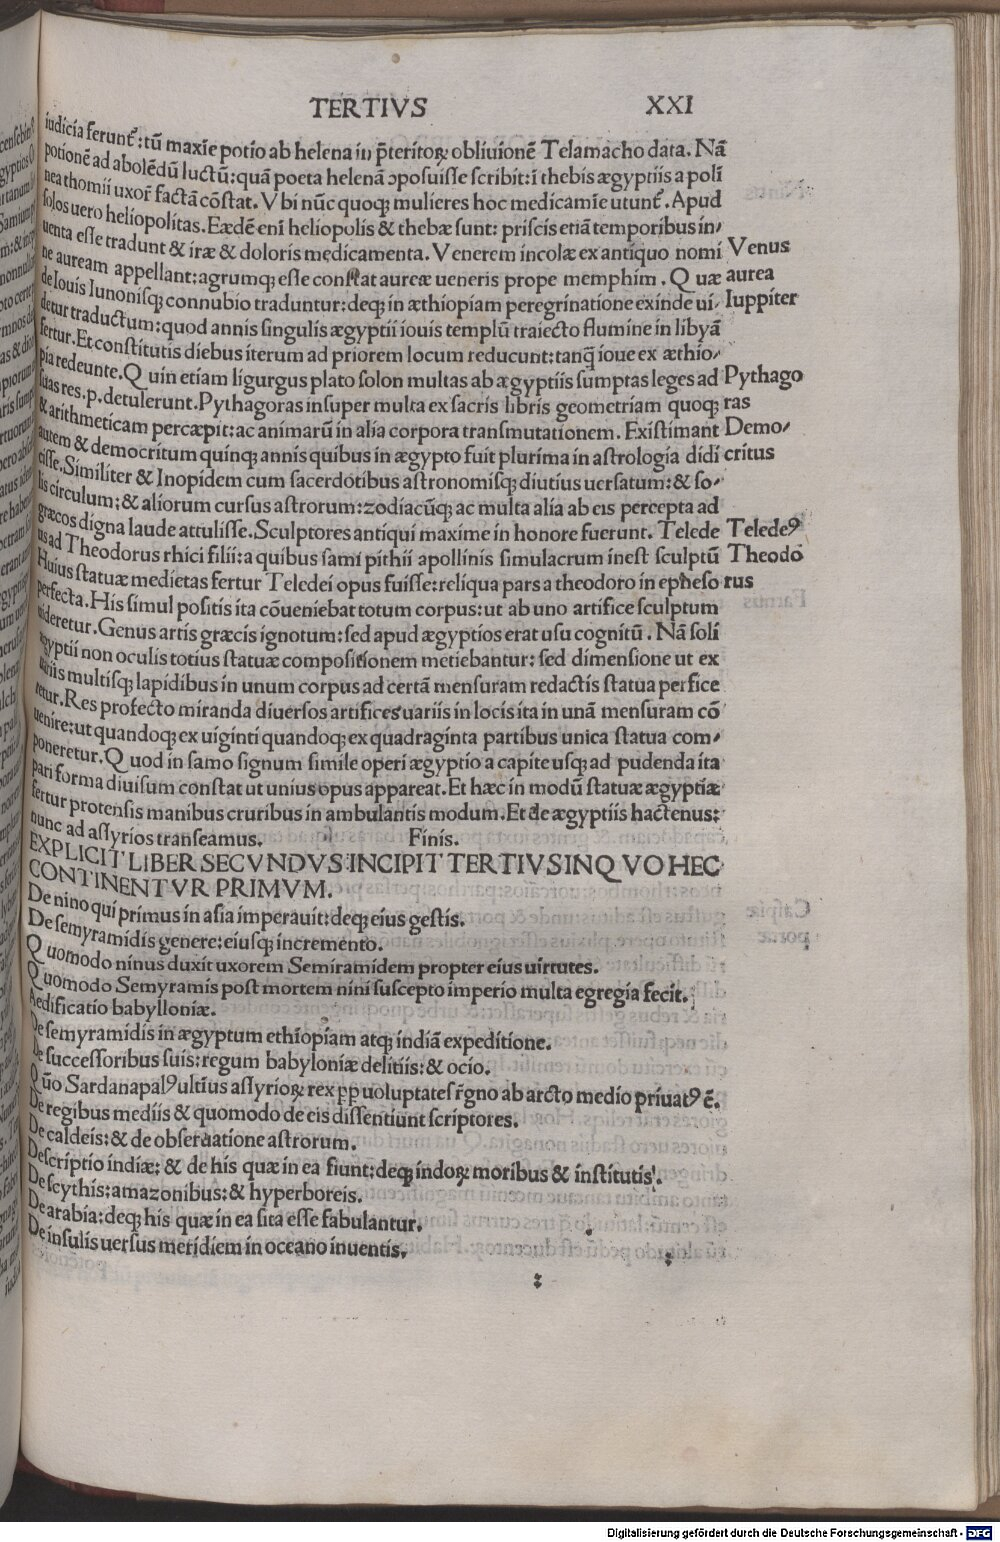 TERTIVS XXI
iudicia ferunt᷑: tū maxīe potio ab helena in p̄teritoꝝ obliuionē Telamacho data. Nā
potionē ad abolēdū luctū: quā poeta helenā ↄposuisse scribit: ī thebis ægyptiis a poli
nea thomii uxor̄ factā cōstat. Vbi nūc quoqꝫ mulieres hoc medicamīe utunt᷑. Apud
solos uero heliopolitas. Eædē enī heliopolis & thebæ sunt: priscis etiā temporibus in/
uenta esse tradunt & iræ & doloris medicamenta. Venerem incolæ ex antiquo nomi Venus
ne auream appellant: agrumqꝫ esse constat aureæ ueneris prope memphim. Quæ aurea
de Iouis Iunonisqꝫ connubio traduntur: deqꝫ in æthiopiam peregrinatione exinde ui/ Iuppiter
detur traductum: quod annis singulis ægyptii iouis templū traiecto flumine in libyā
fertur. Et constitutis diebus iterum ad priorem locum reducunt: tanq̄ ioue ex æthio/
pia redeunte. Quin etiam ligurgus plato solon multas ab ægyptiis sumptas leges ad Pythago
suas res. p. detulerunt. Pythagoras insuper multa ex sacris libris geometriam quoqꝫ ras
& arithmeticam percæpit: ac animarū in alia corpora transmutationem. Existimant Demo/
autem & democritum quinqꝫ annis quibus in ægypto fuit plurima in astrologia didi critus
cisse. Similiter & Inopidem cum sacerdotibus astronomisqꝫ diutius uersatum: & so/
lis circulum: & aliorum cursus astrorum: zodiacūqꝫ ac multa alia ab eis percepta ad
græcos digna laude attulisse. Sculptores antiqui maxime in honore fuerunt. Telede Teledeꝰ
us ad Theodorus rhici filii: a quibus sami pithii apollinis simulacrum inest sculptū Theodo
Huius statuæ medietas fertur Teledei opus fuisse: reliqua pars a theodoro in epheso rus
perfecta. His simul positis ita cōueniebat totum corpus: ut ab uno artifice sculptum
uideretur. Genus artis græcis ignotum: sed apud ægyptios erat usu cognitū. Nā soli
ægyptii non oculis totius statuæ compositionem metiebantur: sed dimensione ut ex
uariis multisqꝫ lapidibus in unum corpus ad certā mensuram redactis statua perfice
retur. Res profecto miranda diuersos artifices uariis in locis ita in unā mensuram cō
uenire: ut quandoqꝫ ex uiginti quandoqꝫ ex quadraginta partibus unica statua com/
poneretur. Quod in samo signum simile operi ægyptio a capite usqꝫ ad pudenda ita
pari forma diuisum constat ut unius opus appareat. Et hæc in modū statuæ ægyptiæ
fertur protensis manibus cruribus in ambulantis modum. Et de ægyptiis hactenus:
nunc ad assyrios transeamus. Finis.
EXPLICIT LIBER SECVNDVS: INCIPIT TERTIVS IN QVO HEC
CONTINENTVR PRIMVM.
De nino qui primus in asia imperauit: deqꝫ eius gestis.
De semyramidis genere: eiusqꝫ incremento.
Quomodo ninus duxit uxorem Semiramidem propter eius uirtutes.
Quomodo Semyramis post mortem nini suscepto imperio multa egregia fecit.
Aedificatio babylloniæ.
De semyramidis in ægyptum ethiopiam atqꝫ indiā expeditione.
De successoribus suis: regum babyloniæ delitiis: & ocio.
Quō Sardanapalꝰ ultīus assyrioꝝ rex ꝓꝑ uoluptates r̄gno ab arcto medio priuatꝰ ē.
De regibus mediis & quomodo de eis dissentiunt scriptores.
De caldeis: & de obseruatione astrorum.
Descriptio indiæ: & de his quæ in ea fiunt: deqꝫ indoꝝ moribus & institutis.
De scythis: amazonibus: & hyperboreis.
De arabia: deqꝫ his quæ in ea sita esse fabulantur.
De insulis uersus meridiem in oceano inuentis.
Digitalisierung gefördert durch die Deutsche Forschungsgemeinschaft - DFG